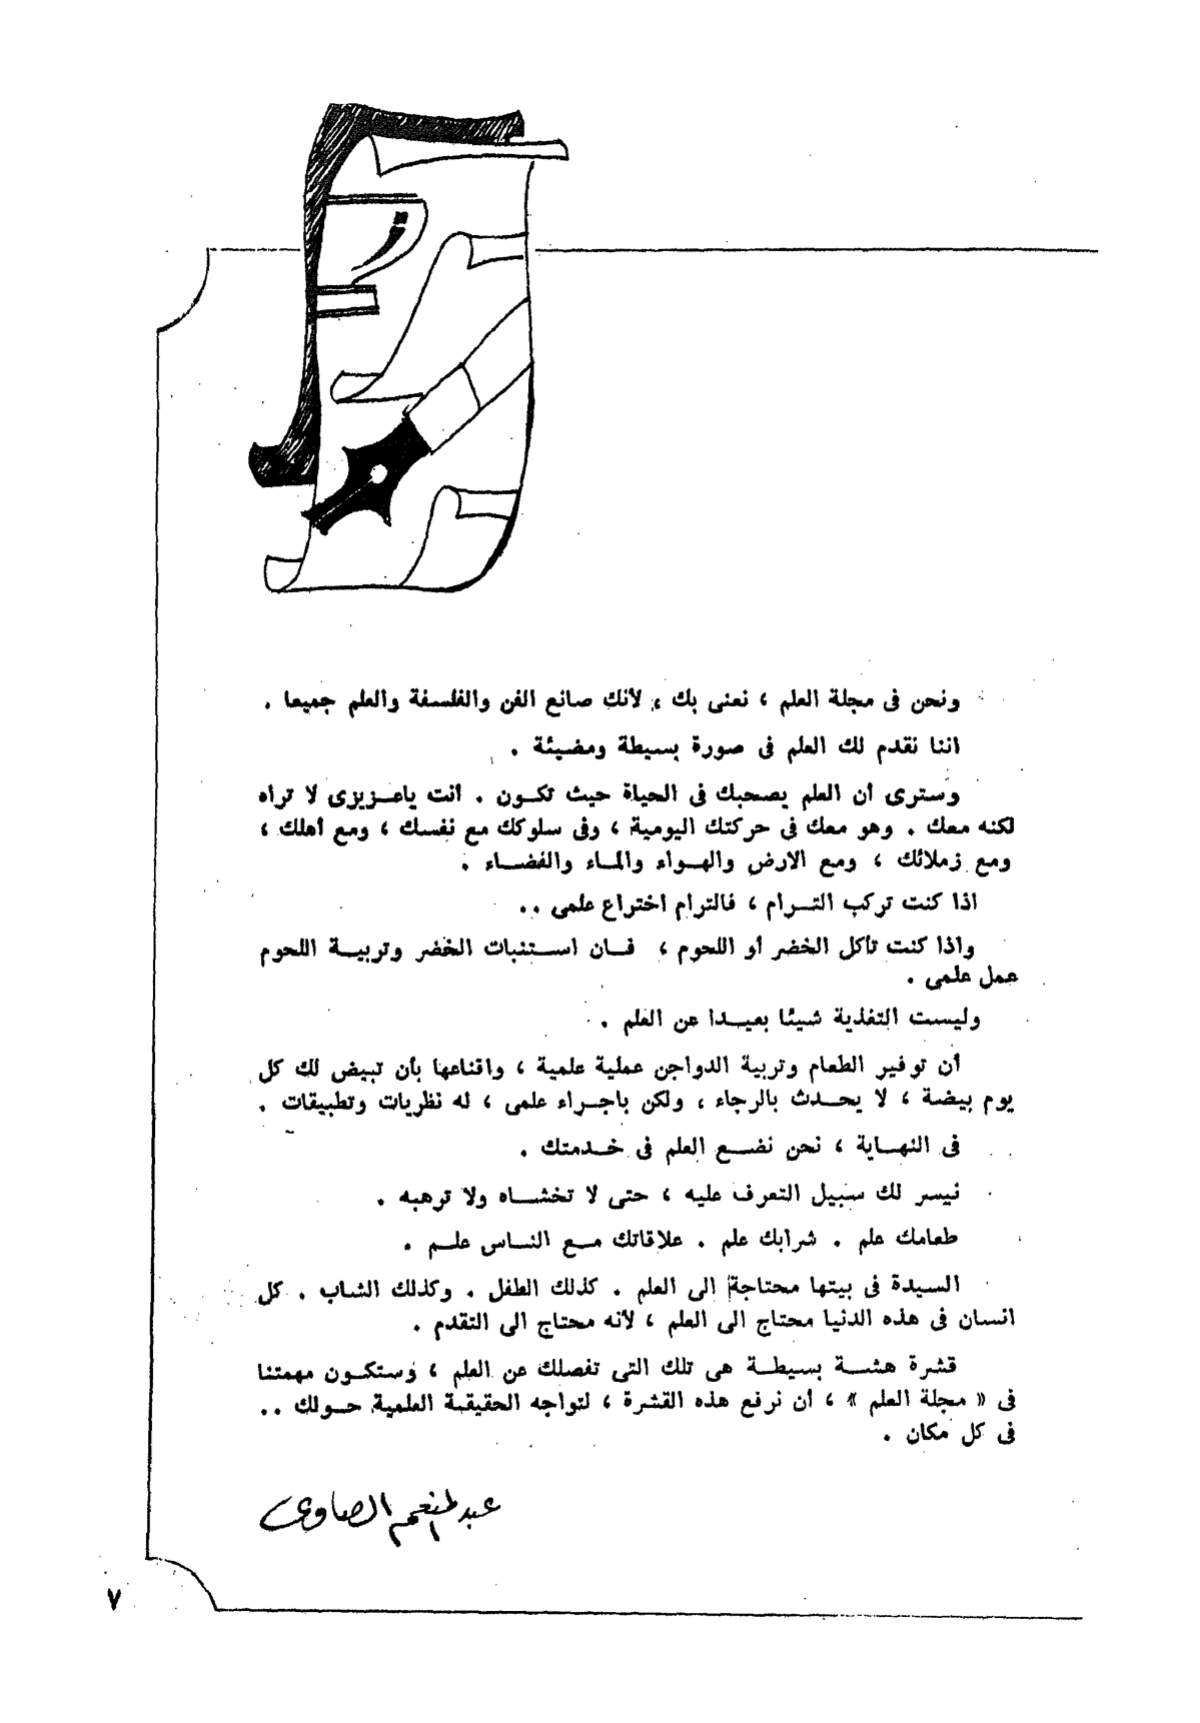 ونحن فى مجلة العلم ، نعنى بك ، لأنك صانع الفن والفلسفة والعلم جميعا .
اننا نقدم لك العلم فى صورة بسيطة ومضيئة .
وسترى أن العلم يصحبك فى الحياة حيث تكون . أنت ياعزيزى لا تراه
لكنه معك . وهو معك فى حركتك اليومية ، وفى سلوكك مع نفسك ، ومع أهلك ،
ومع زملائك ، ومع الارض والهواء والماء والفضاء .
اذا كنت تركب الترام ، فالترام اختراع علمى ..
واذا كنت تأكل الخضر أو اللحوم ، فان استنبات الخضر وتربية اللحوم
عمل علمى .
وليست التغذية شيئا بعيدا عن العلم .
أن توفير الطعام وتربية الدواجن عملية علمية ، واقناعها بأن تبيض لك كل
يوم بيضة ، لا يحدث بالرجاء ، ولكن باجراء علمى ، له نظريات وتطبيقات .
فى النهاية ، نحن نضع العلم فى خدمتك .
نيسر لك سبيل التعرف عليه ، حتى لا تخشاه ولا ترهبه .
طعامك علم . شرابك علم . علاقاتك مع الناس علم .
السيدة فى بيتها محتاجة الى العلم . كذلك الطفل . وكذلك الشاب . كل
انسان فى هذه الدنيا محتاج الى العلم ، لأنه محتاج الى التقدم .
قشرة هشة بسيطة هى تلك التى تفصلك عن العلم ، وستكون مهمتنا
فى « مجلة العلم » ، أن نرفع هذه القشرة ، لتواجه الحقيقة العلمية حولك ..
فى كل مكان .
عبد المنعم الصاوى
٧